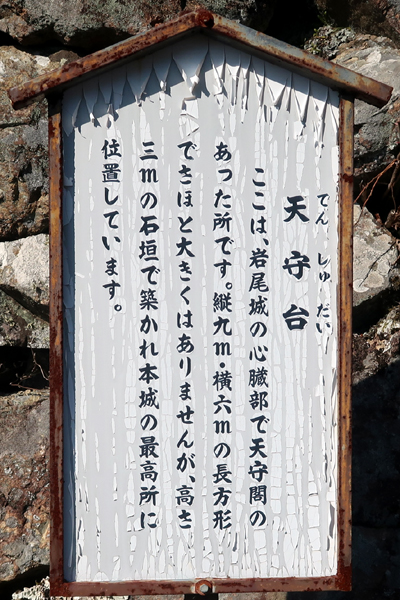 てんしゅだい
天守台
ここは、岩尾城の心臓部で天守閣の
あった所です。縦九m・横六mの長方形
でさほと大きくはありませんが、高さ
三mの石垣で築かれ本城の最高所に
位置しています。